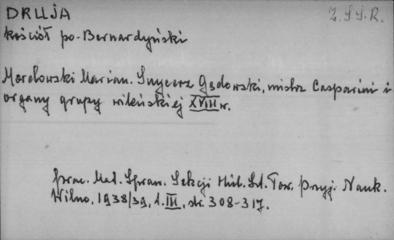 DRUJA
Z.S.S.R.
kościół po-Bernardyński
Morelowski Marian. Snycerz Gędowski, mistrz Casparini i
organy grupy wileńskiej XVIII w.
prac. Mat. Spraw. Sekcji Hist. Szt. Tow. Przyj. Nauk.
Wilno, 1938/39, t. III, str. 308-317.